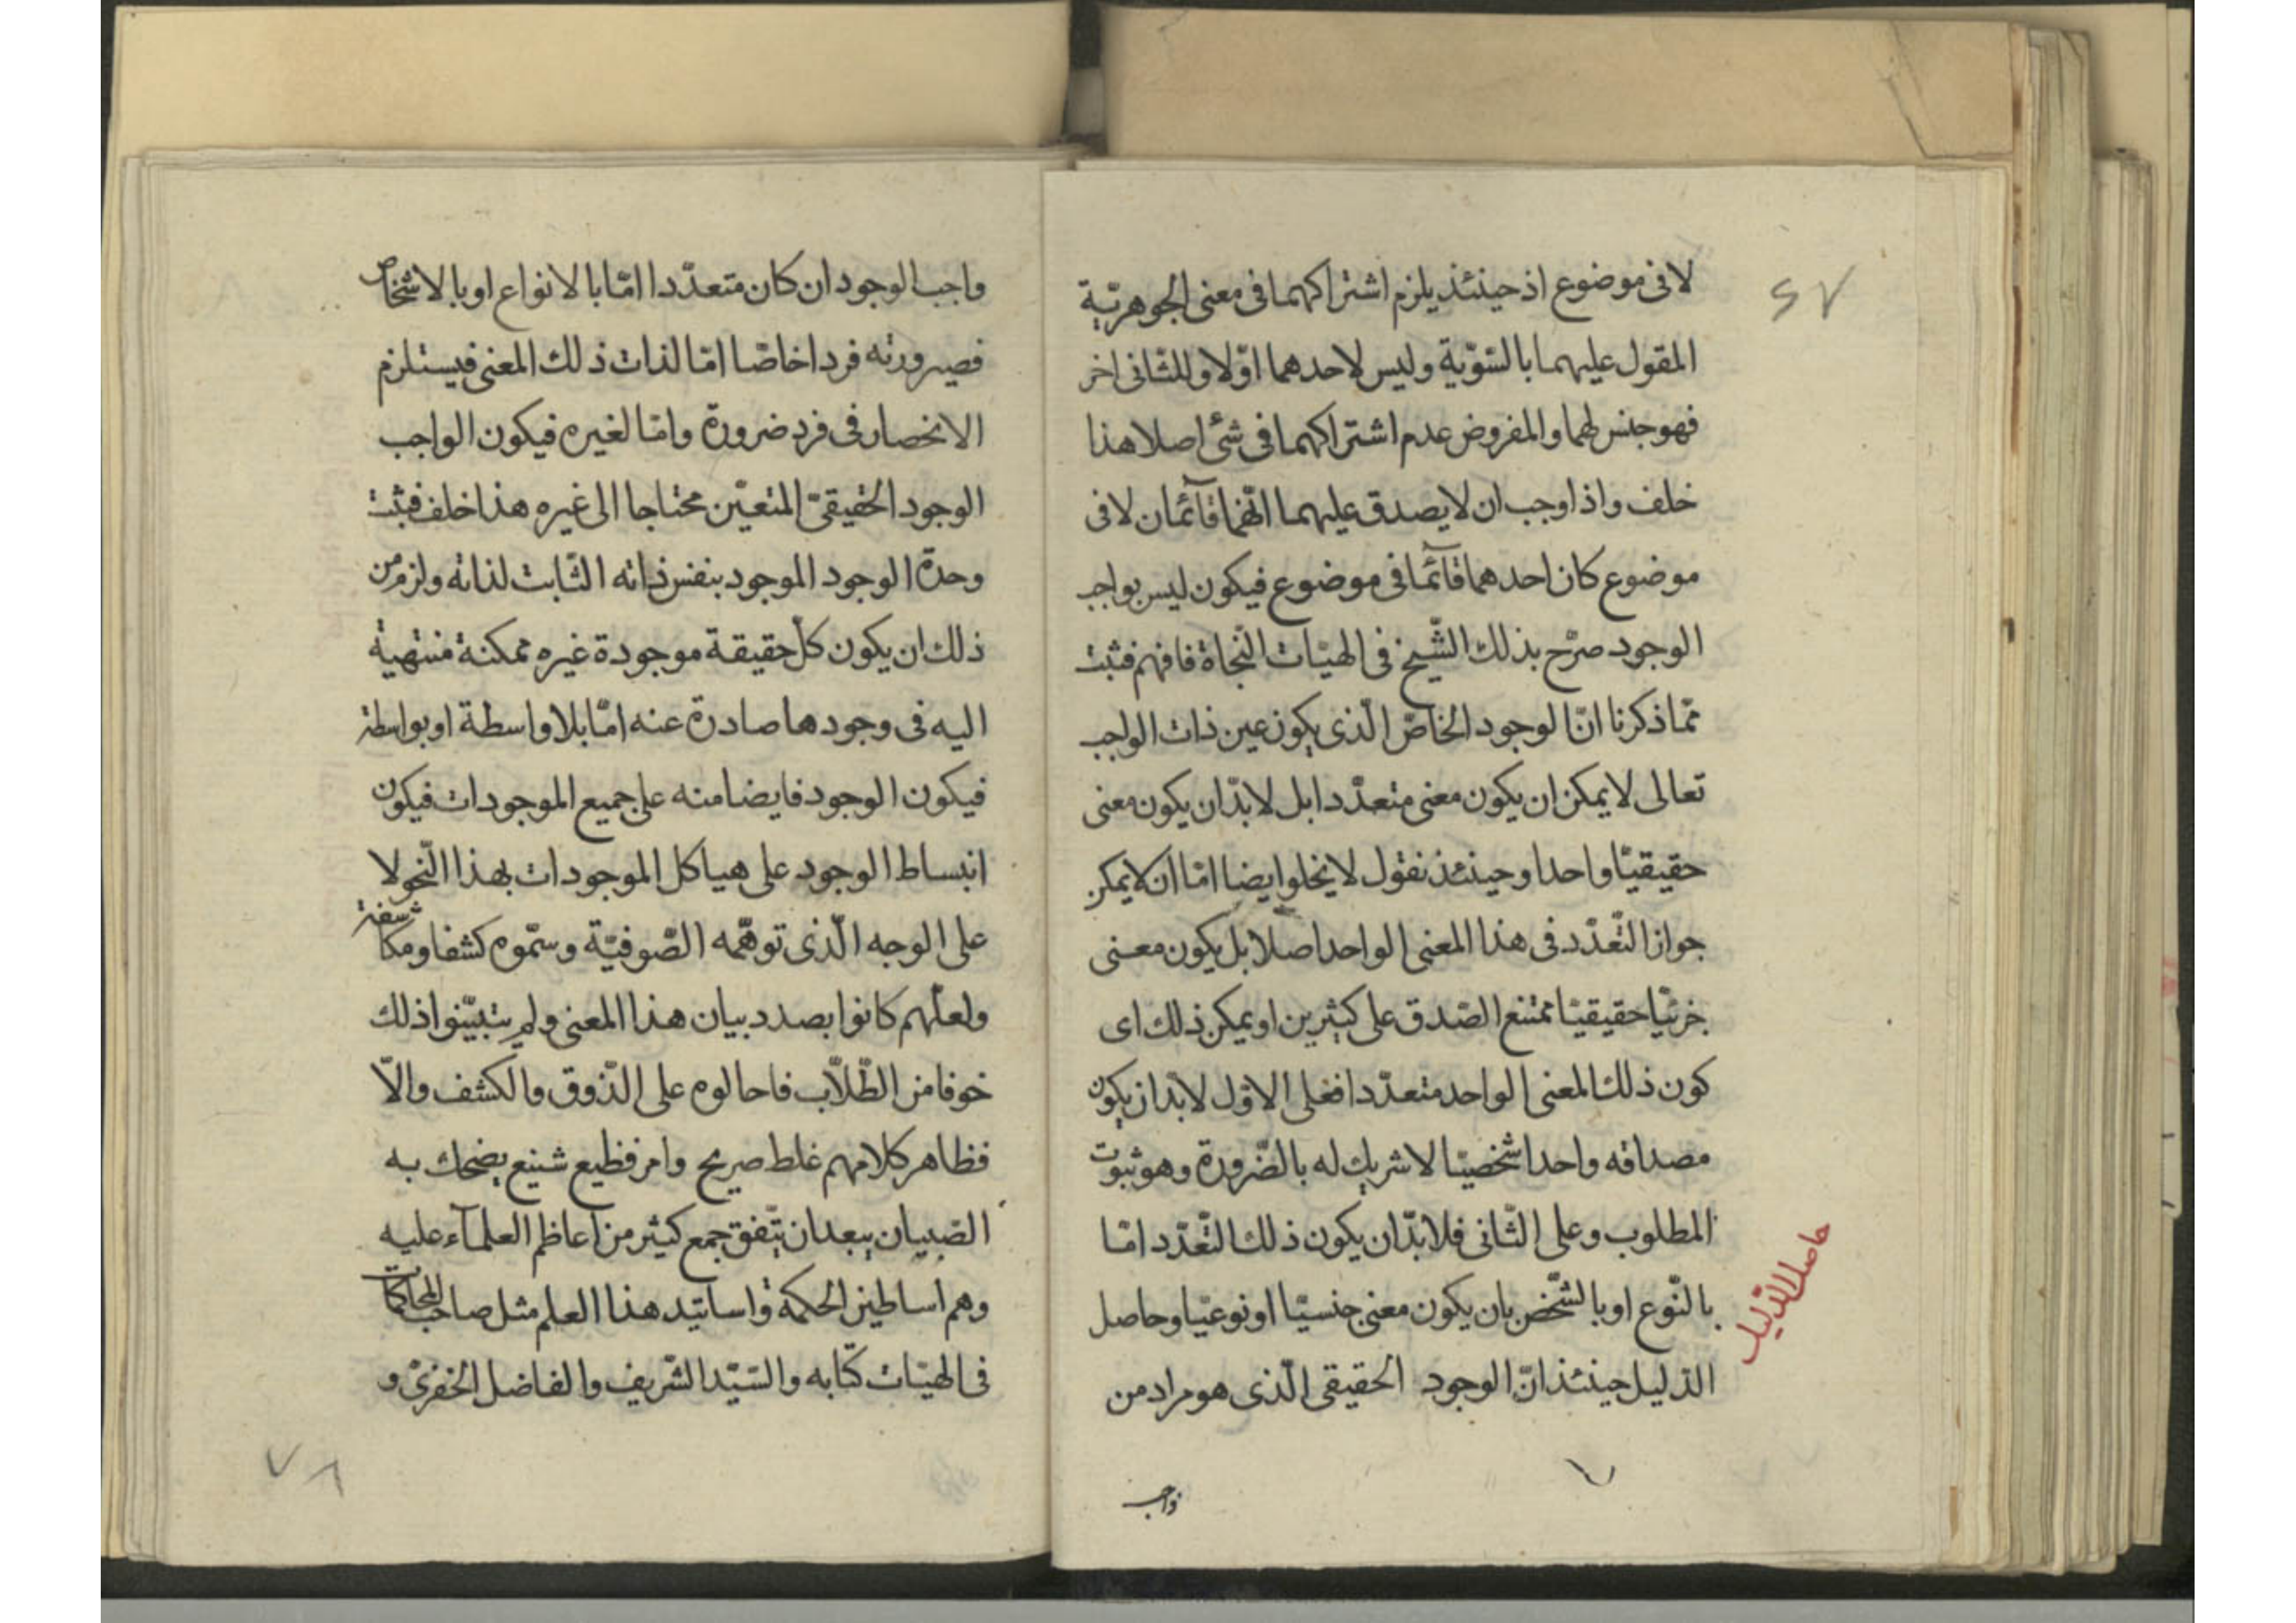 لا فى موضوع اذ حينئذ يلزم اشتراكهما فى معنى الجوهريّة
المقول عليهما بالسّويّة وليس لاحدهما اوّلا وللثّانى اخر
فهو جنس لهما والمفروض عدم اشتراكهما فى شئ اصلا هذا
خلف واذا وجب ان لا يصدق عليهما انّهما قآئمان لا فى
موضوع كان احدهما قآئما فى موضوع فيكون ليس بواجب
الوجود صرّح بذلك الشّيخ فى الهيّات النّجاة فافهم فثبت
ممّا ذكرنا انّ الوجود الخاصّ الّذى يكون عين ذات الواجب
تعالى لا يمكن ان يكون معنى متعدّدا بل لا بدّ ان يكون معنى
حقيقيّا واحدا وحينئذ نقول لا يخلو ايضا امّا ان لا يمكن
جواز التّعدّد فى هذا المعنى الواحد اصلا بل يكون معنى
جزئيّا حقيقيّا ممتنع الصّدق على كثيرين او يمكن ذلك اى
كون ذلك المعنى الواحد متعدّدا فعلى الاوّل لا بدّ ان يكون
مصداقه واحدا شخصيّا لا شريك له بالضّرورة وهو ثبوت
المطلوب وعلى الثّانى فلا بدّ ان يكون ذلك التّعدّد امّا
بالنّوع او بالشّخص بان يكون معنى جنسيّا او نوعيّا وحاصل
الدّليل حينئذ انّ الوجود الحقيقى الّذى هو مراد من
حاصل الدّليل
واجب
واجب الوجود ان كان متعدّدا امّا بالانواع او بالاشخاص
فصيرورته فردا خاصّا امّا لذات ذلك المعنى فيستلزم
الانحصار فى فرد ضرورة وامّا لغيره فيكون الواجب
الوجود الحقيقىّ المتعيّن محتاجا الى غيره هذا خلف فثبت
وحدة الوجود الموجود بنفس ذاته الثّابت لذاته ولزم من
ذلك ان يكون كلّ حقيقة موجودة غيره ممكنة منتهية
اليه فى وجودها صادرة عنه امّا بلا واسطة او بواسطة
فيكون الوجود فايضا منه على جميع الموجودات فيكون
انبساط الوجود على هياكل الموجودات بهذا النّحو لا
على الوجه الّذى توهّمه الصّوفيّة وسمّوه كشفا ومكاشفة
ولعلّهم كانوا بصدد بيان هذا المعنى ولم يتبيّنوا ذلك
خوفا من الطّلّاب فاحالوه على الذّوق والكشف والّا
فظاهر كلامهم غلط صريح وامر فظيع شنيع يضحك به
الصّبيان يبعد ان يتّفق جمع كثير من اعاظم العلمآء عليه
وهم اساطين الحكمة واساتيد هذا العلم مثل صاحب المحاكمات
فى الهيّات كتابه والسّيّد الشّريف والفاضل الخفرىّ و
٧٨